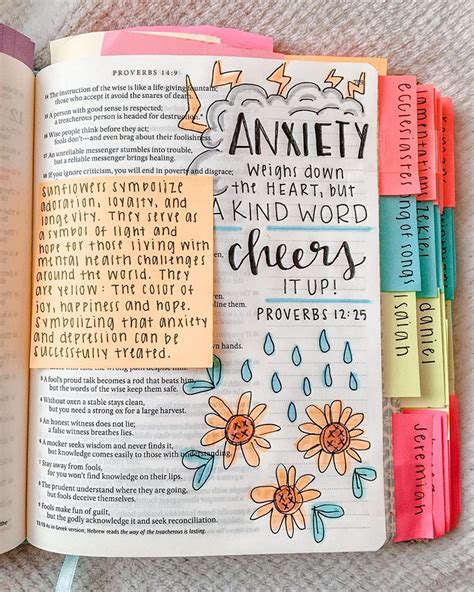 PROVERBS 14:9
14 The instruction of the wise is like a life-giving fountain;
those who accept it avoid the snares of death.
15 A person with good sense is respected;
a treacherous person is headed for destruction.*
16 Wise people think before they act;
fools don't—and even brag about their foolishness.
17 An unreliable messenger stumbles into trouble,
but a reliable messenger brings healing.
18 If you ignore criticism, you will end in poverty and disgrace;
ANXIETY
WEIGHS DOWN
THE HEART, BUT
A KIND WORD
cheers
IT UP!
PROVERBS 12:25
SUNFLOWERS SYMBOLIZE
ADORATION, LOYALTY, AND
LONGEVITY. THEY SERVE AS
A SYMBOL OF LIGHT AND
HOPE FOR THOSE LIVING WITH
MENTAL HEALTH CHALLENGES
AROUND THE WORLD. THEY
ARE YELLOW: THE COLOR OF
JOY, HAPPINESS AND HOPE.
SYMBOLIZING THAT ANXIETY
AND DEPRESSION CAN BE
SUCCESSFULLY TREATED.
3 A fool's proud talk becomes a rod that beats him,
but the words of the wise keep them safe.
4 Without oxen a stable stays clean,
but you need a strong ox for a large harvest.
5 An honest witness does not lie;
a false witness breathes lies.
6 A mocker seeks wisdom and never finds it,
but knowledge comes easily to those with understanding.
7 Stay away from fools,
for you won't find knowledge on their lips.
8 The prudent understand where they are going,
but fools deceive themselves.
9 Fools make fun of guilt,
but the godly acknowledge it and seek reconciliation.
As in Greek version; Hebrew reads the way of the treacherous is lasting.
ecclesiastes
lamentations
song of songs
ezekiel
isaiah
daniel
Jeremiah